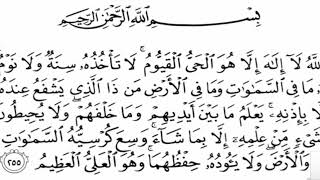 بِسْمِ ٱللَّهِ ٱلرَّحْمَٰنِ ٱلرَّحِيمِ
للَّهُ لَآ إِلَٰهَ إِلَّا هُوَ ٱلْحَىُّ ٱلْقَيُّومُ ۚ لَا تَأْخُذُهُۥ سِنَةٌ وَلَا نَوْمٌ
مَا فِى ٱلسَّمَٰوَٰتِ وَمَا فِى ٱلْأَرْضِ ۗ مَن ذَا ٱلَّذِى يَشْفَعُ عِندَهُۥ
لَّا بِإِذْنِهِۦ ۚ يَعْلَمُ مَا بَيْنَ أَيْدِيهِمْ وَمَا خَلْفَهُمْ ۖ وَلَا يُحِيطُونَ
شَىْءٍ مِّنْ عِلْمِهِۦٓ إِلَّا بِمَا شَآءَ ۚ وَسِعَ كُرْسِيُّهُ ٱلسَّمَٰوَٰتِ
وَٱلْأَرْضَ ۖ وَلَا يَـُٔودُهُۥ حِفْظُهُمَا ۚ وَهُوَ ٱلْعَلِىُّ ٱلْعَظِيمُ ٢٥٥